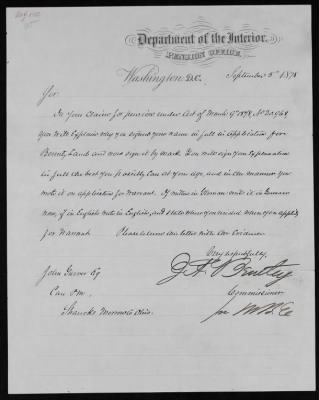 Department of the Interior,
PENSION OFFICE,
Washington D.C. September 5th 1878
Sir
In your Claim for pension under act of March 9th 1878, No 20,964
you will Explain why you signed your name in full in application for
Bounty Land and now sign it by mark. You will sign your Explanation
in full the best you possibly can at your age, and in the manner you
wrote it on application for Warrant. If written in German write it in German
now, if in English write in English, and state when you resided when you applied
for Warrant. Please return this letter with the Evidence
Very respectfully,
J A Bentley
Commissioner
for
John Garver Esq
Care P.M.
Shaucks Morrow Co Ohio.